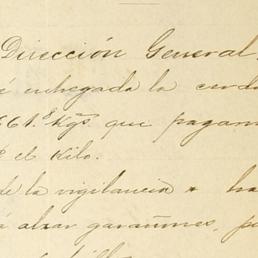 Dirección General,
é entregada la cerda
661.8 Kgs. que pagam
el Kilo.
de la vigilancia ha
á alzar garañones, p